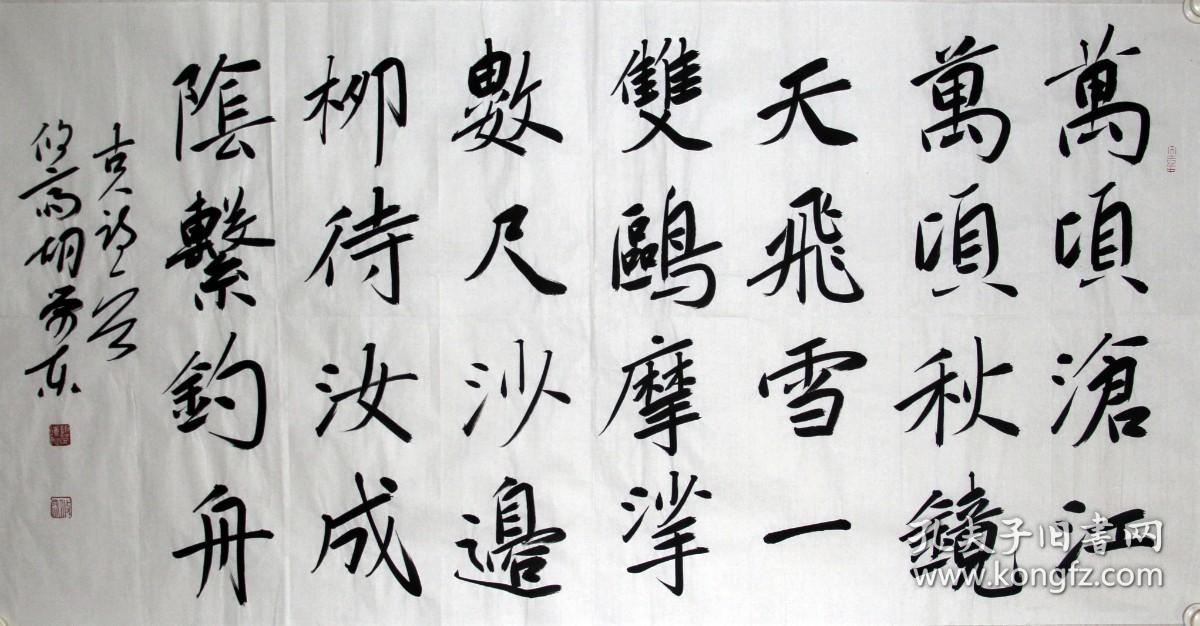 萬頃滄江
萬頃秋鏡
天飛雪一
雙鷗摩挲
數尺沙邊
柳待汝成
陰繫釣舟
孔夫子旧书网
www.kongfz.com